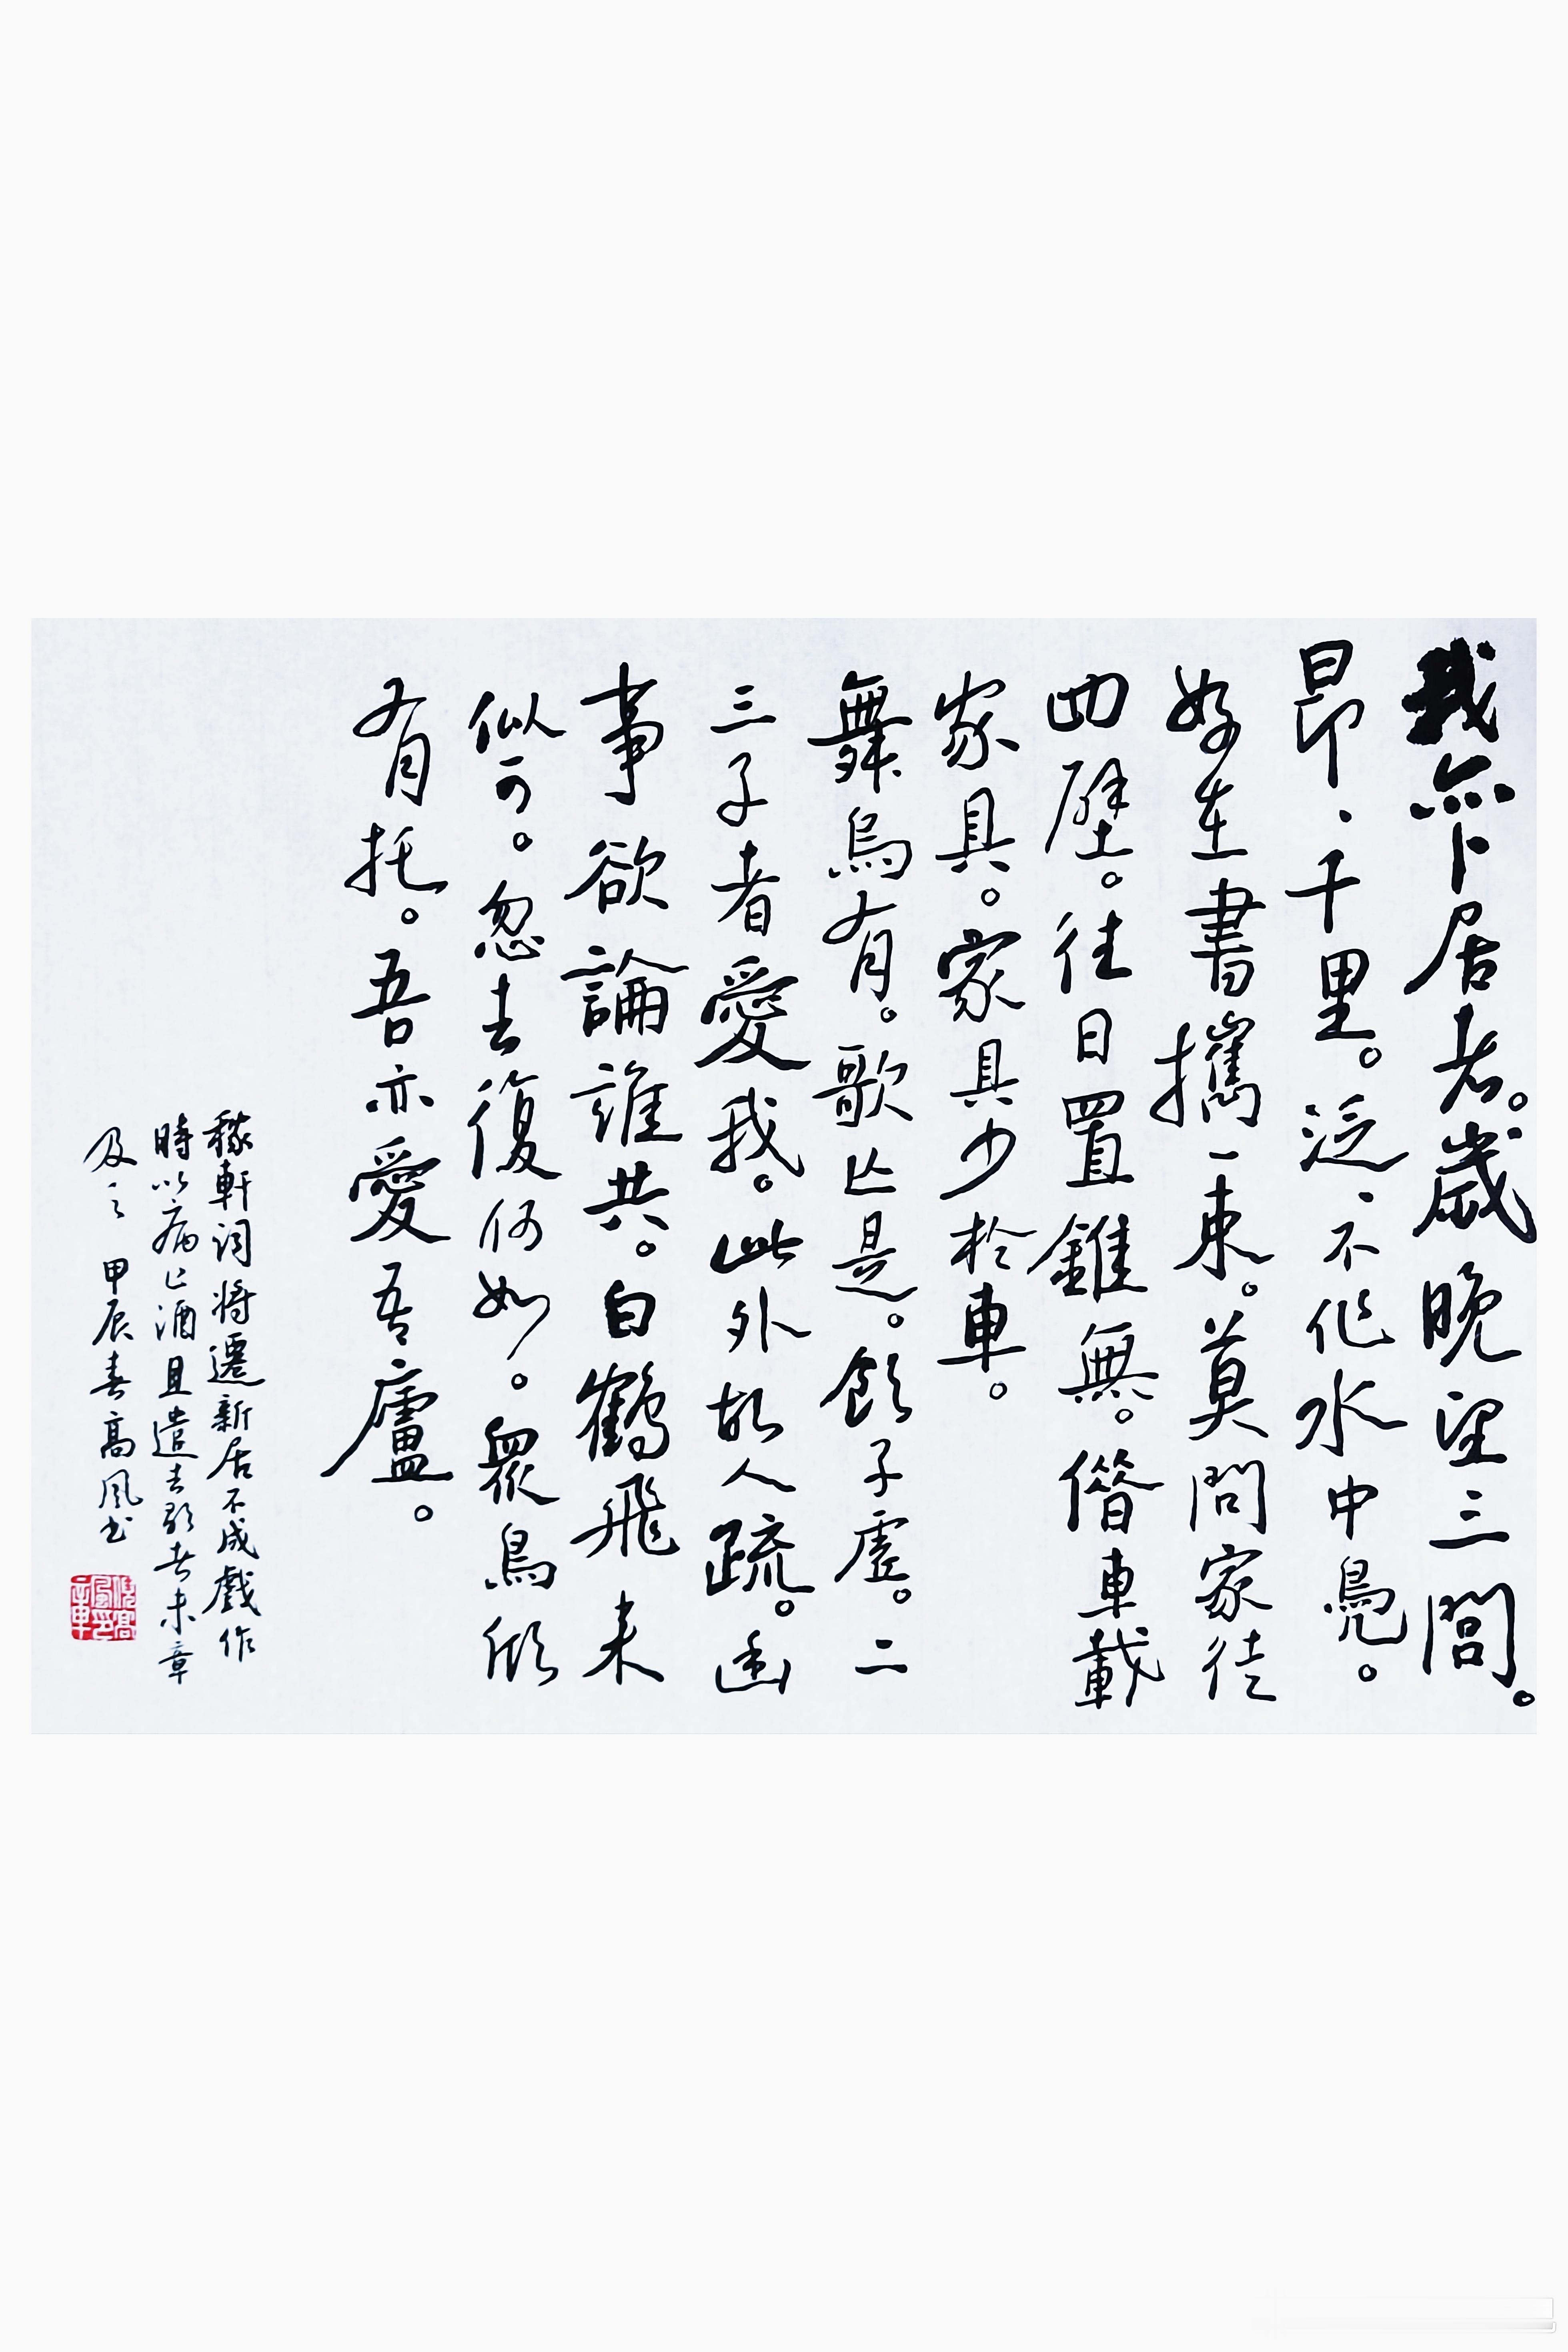 我亦卜居者。歲晚望三閭。
昂、千里。泛、不作水中鳧。
好在書攜一束。莫問家徒
四壁。往日置錐無。借車載
家具。家具少於車。
舞烏有。歌亡是。飲子虛。二
三子者愛我。此外故人疏。幽
事欲論誰共。白鶴飛來
似可。忽去復何如。眾鳥欣
有托。吾亦愛吾廬。
稼軒詞將遷新居不成戲作
時以病止酒且遣去歌者末章
及之 甲辰春高風书